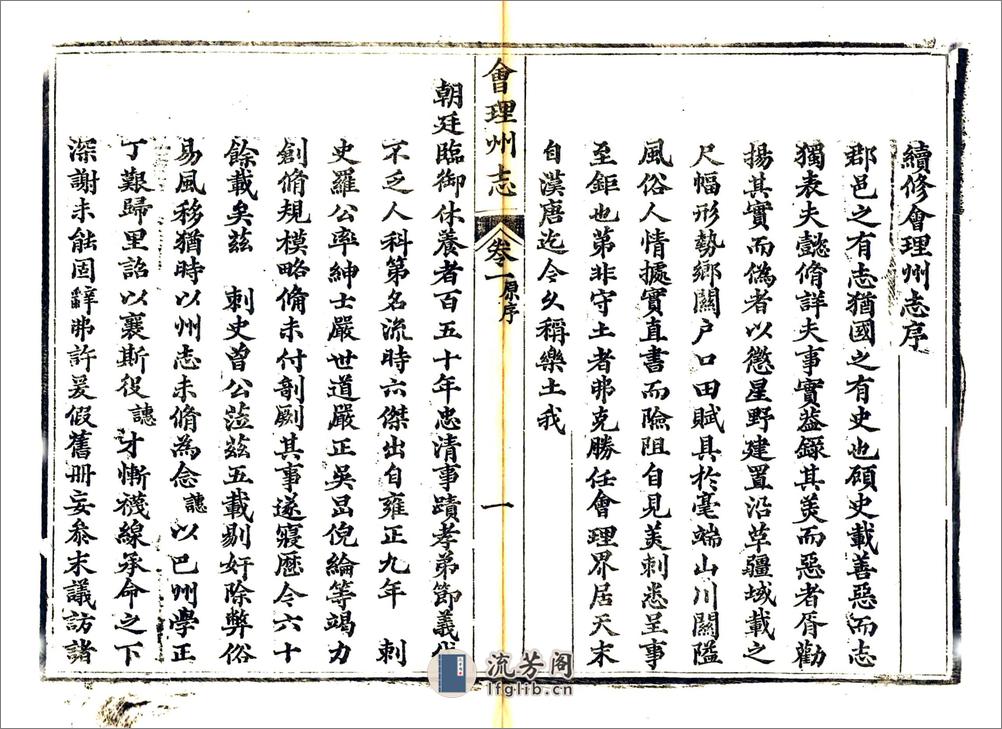 續修會理州志序
郡邑之有志猶國之有史也顧史載善惡而志
獨表夫懿脩詳夫事實葢錄其美而惡者胥勸
揚其實而偽者以懲星野建置沿革疆域載之
尺幅形勢鄉關户口田賦具於毫端山川關隘
風俗人情據實直書而險阻自見美刺悉呈事
至鉅也第非守土者弗克勝任會理界居天末
自漢唐迄今久稱樂土我
會理州志
卷一
原序
一
朝廷臨御休養者百五十年忠清事蹟孝弟節義代
不乏人科第名流時亦傑出自雍正九年 刺
史羅公率紳士嚴世道嚴正吳昂倪綸等竭力
創脩規模略備未付剞劂其事遂寢歷今六十
餘載矣茲 刺史曾公蒞茲五載剔奸除弊俗
易風移猶時以州志未脩為念 驄 以巴州學正
丁艱歸里詔以襄斯役 驄 才慚襪線承命之下
深謝未能固辭弗許爰假舊冊妄參末議訪諸
流芳阁
lfglib.cn